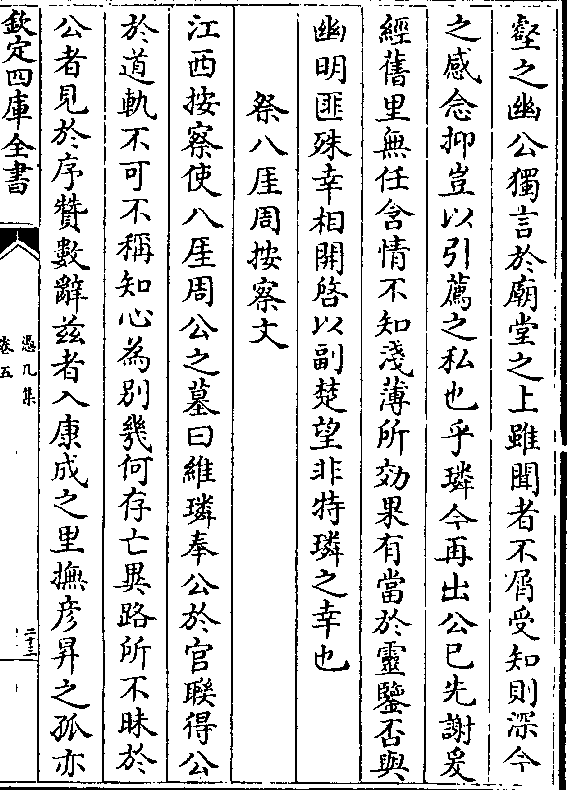 壑之幽公獨言於廟堂之上雖聞者不屑受知則深今
之感念抑豈以引薦之私也乎璘今再出公已先謝爰
經舊里無任含情不知淺薄所効果有當於靈鑒否與
幽明匪殊幸相開啓以副楚望非特璘之幸也
祭八厓周按察文
江西按察使八厓周公之墓曰維璘奉公於官聯得公
於道軌不可不稱知心為别幾何存亡異路所不昧於
公者見於序贊數辭兹者入康成之里撫彦昇之孤亦
欽定四庫全書
憑几集
卷五
二十三